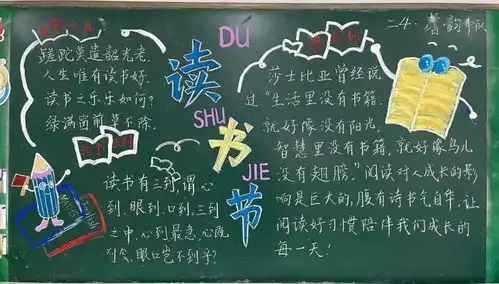 蹉跎莫遣韶光老,
人生唯有读书好.
读书之乐乐如何?
绿满窗前草不除.
读书三到
读书有三到,谓心
到、眼到、口到,三到
之中,心到最急,心既
到矣,眼口岂不到乎?
DU
读
SHU
书
JIE
节
二4·韵中队
莎士比亚曾经说
过:“生活里没有书籍,
就好像没有阳光,
智慧里没有书籍,就好像鸟儿
没有翅膀.”阅读对人成长的影
响是巨大的,腹有诗书气自华,让
阅读好习惯陪伴我们成长的
每一天!